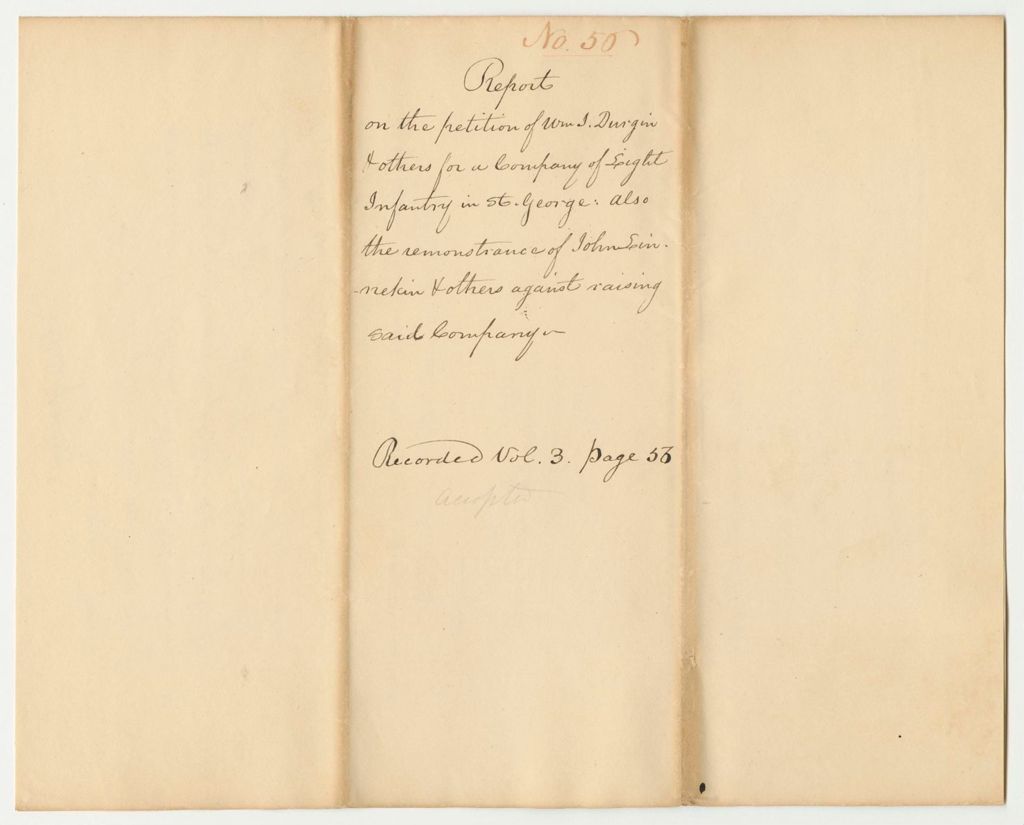 No. 50
Report
on the petition of Wm J. Durgin
& others for a Company of Light
Infantry in St. George: also
the remonstrance of John Lin-
-nekin & others against raising
said Company
Recorded Vol. 3. Page 56
accepted